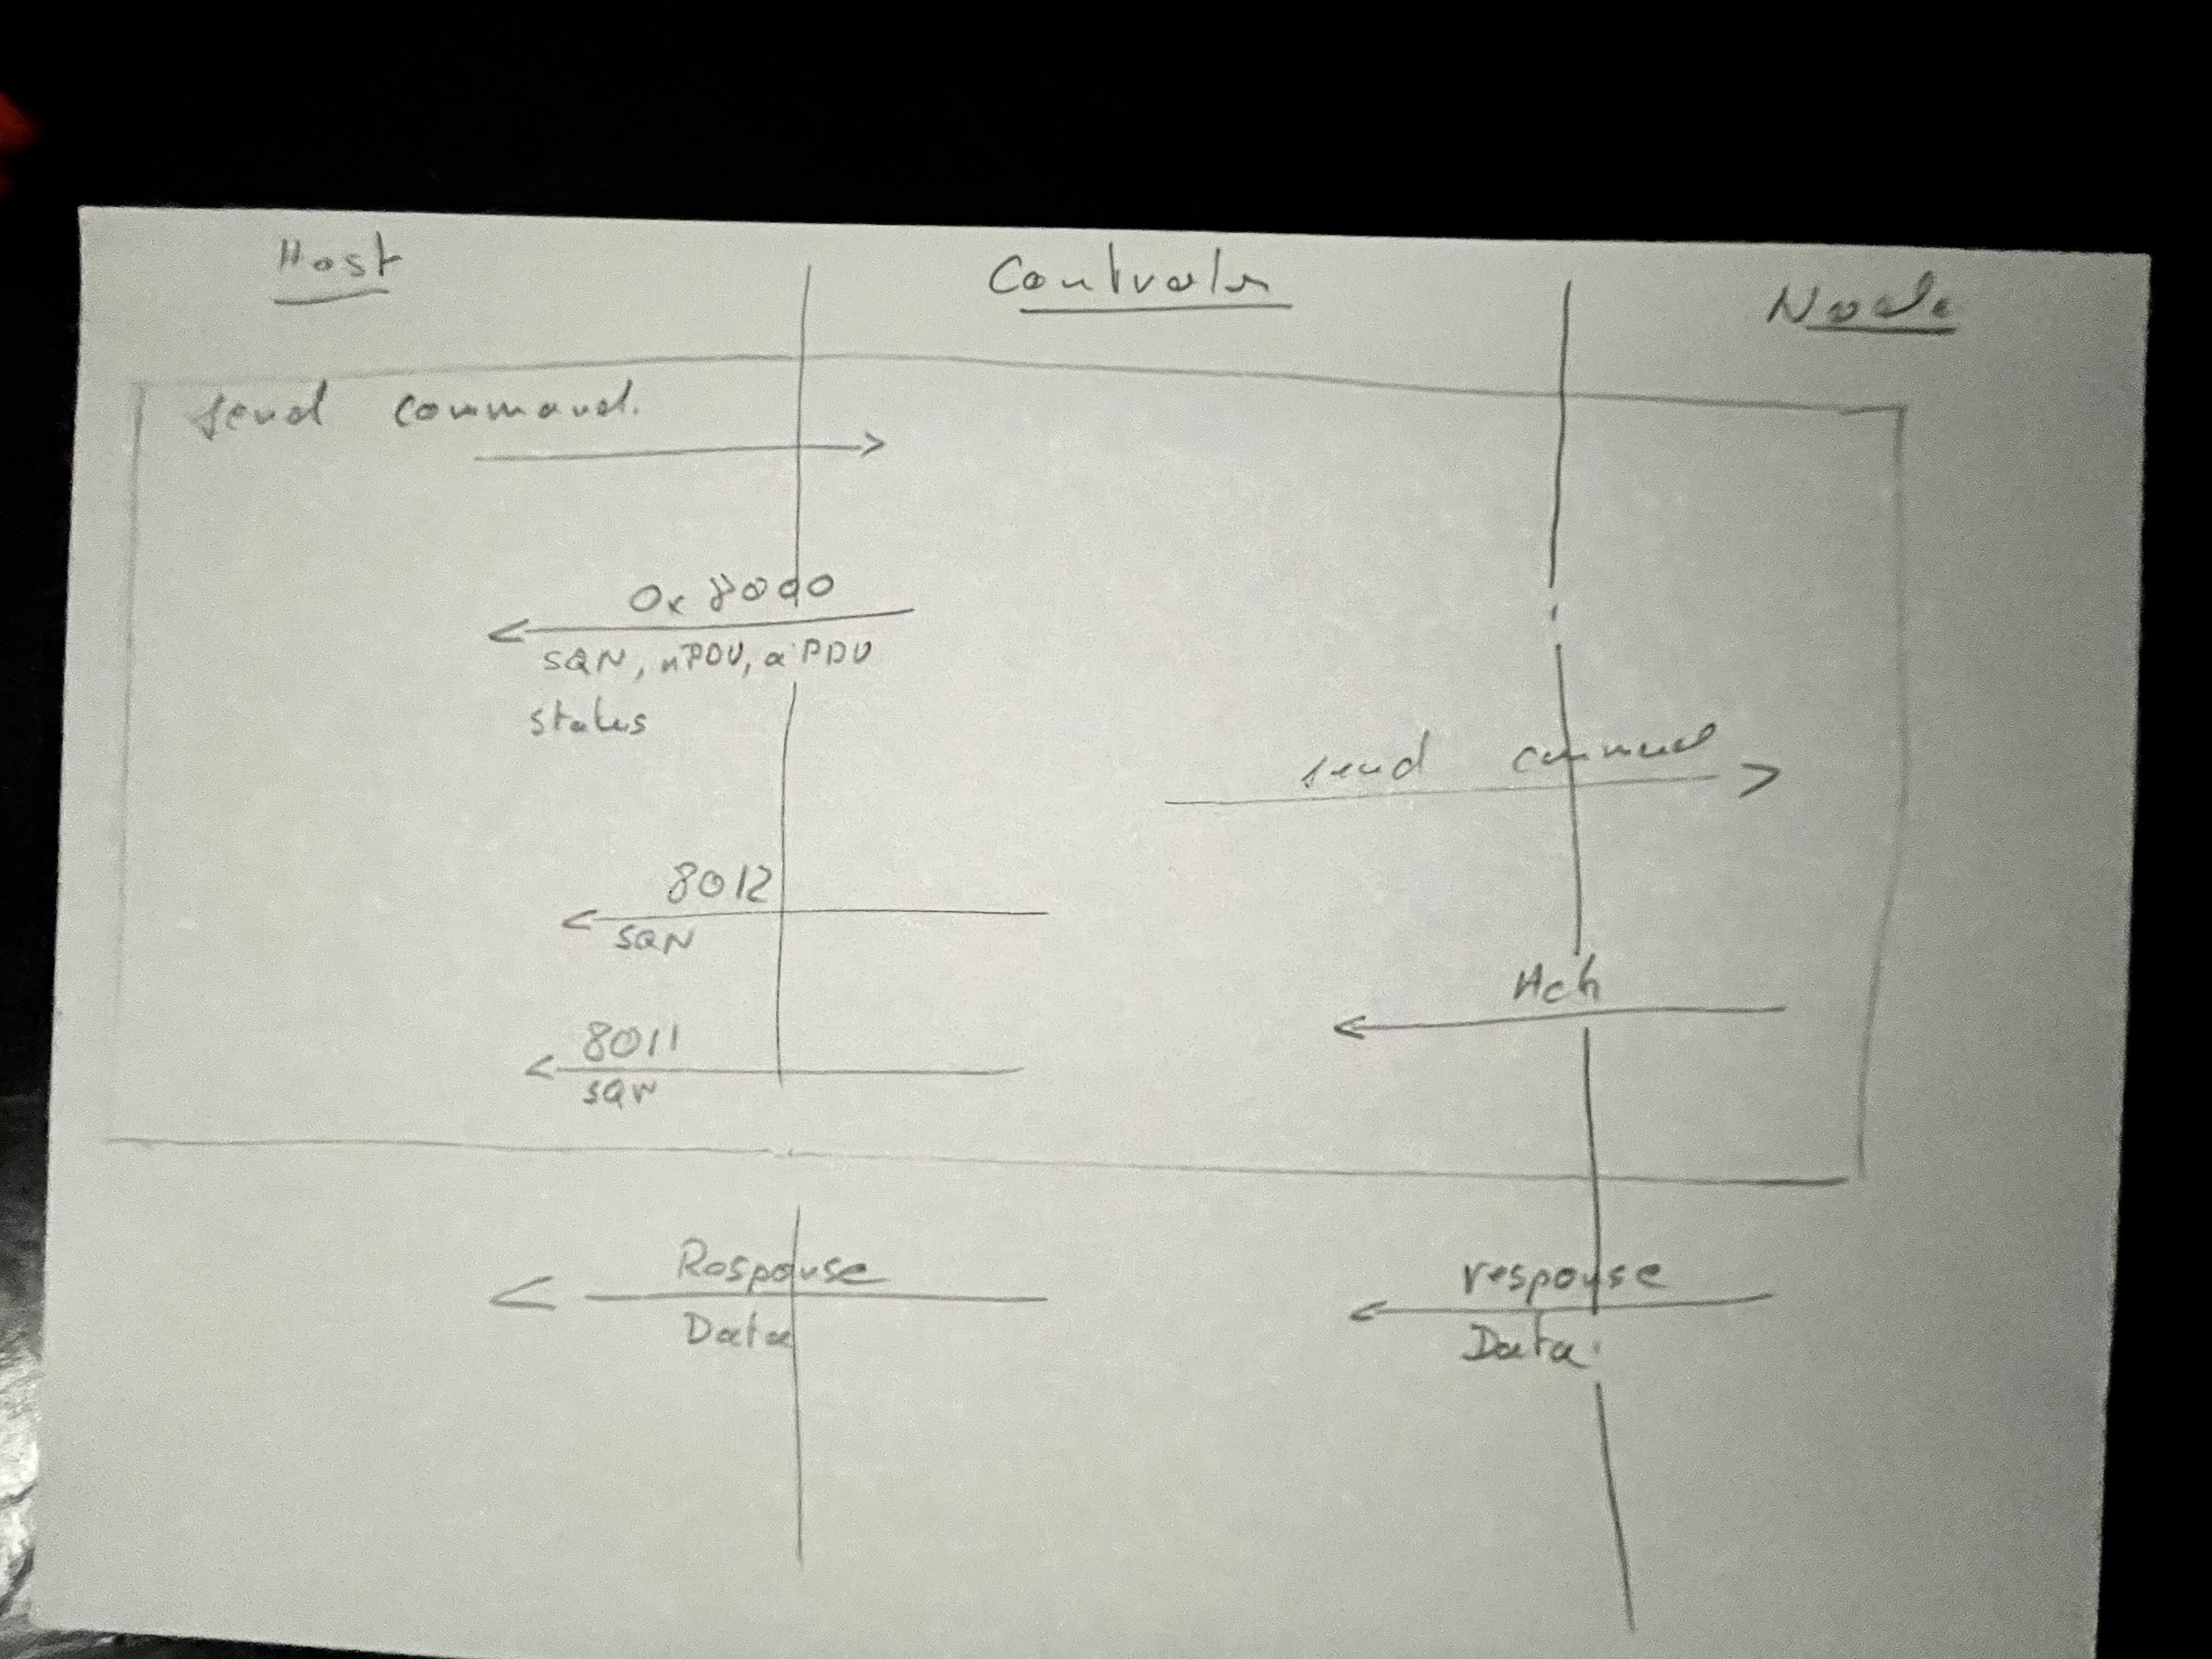 Host
Controler
Node
send command.
0x 8000
SQN, nPDU, aPDU
status
send command
8012
SQN
Ack
8011
SQN
Response
Data
response
Data